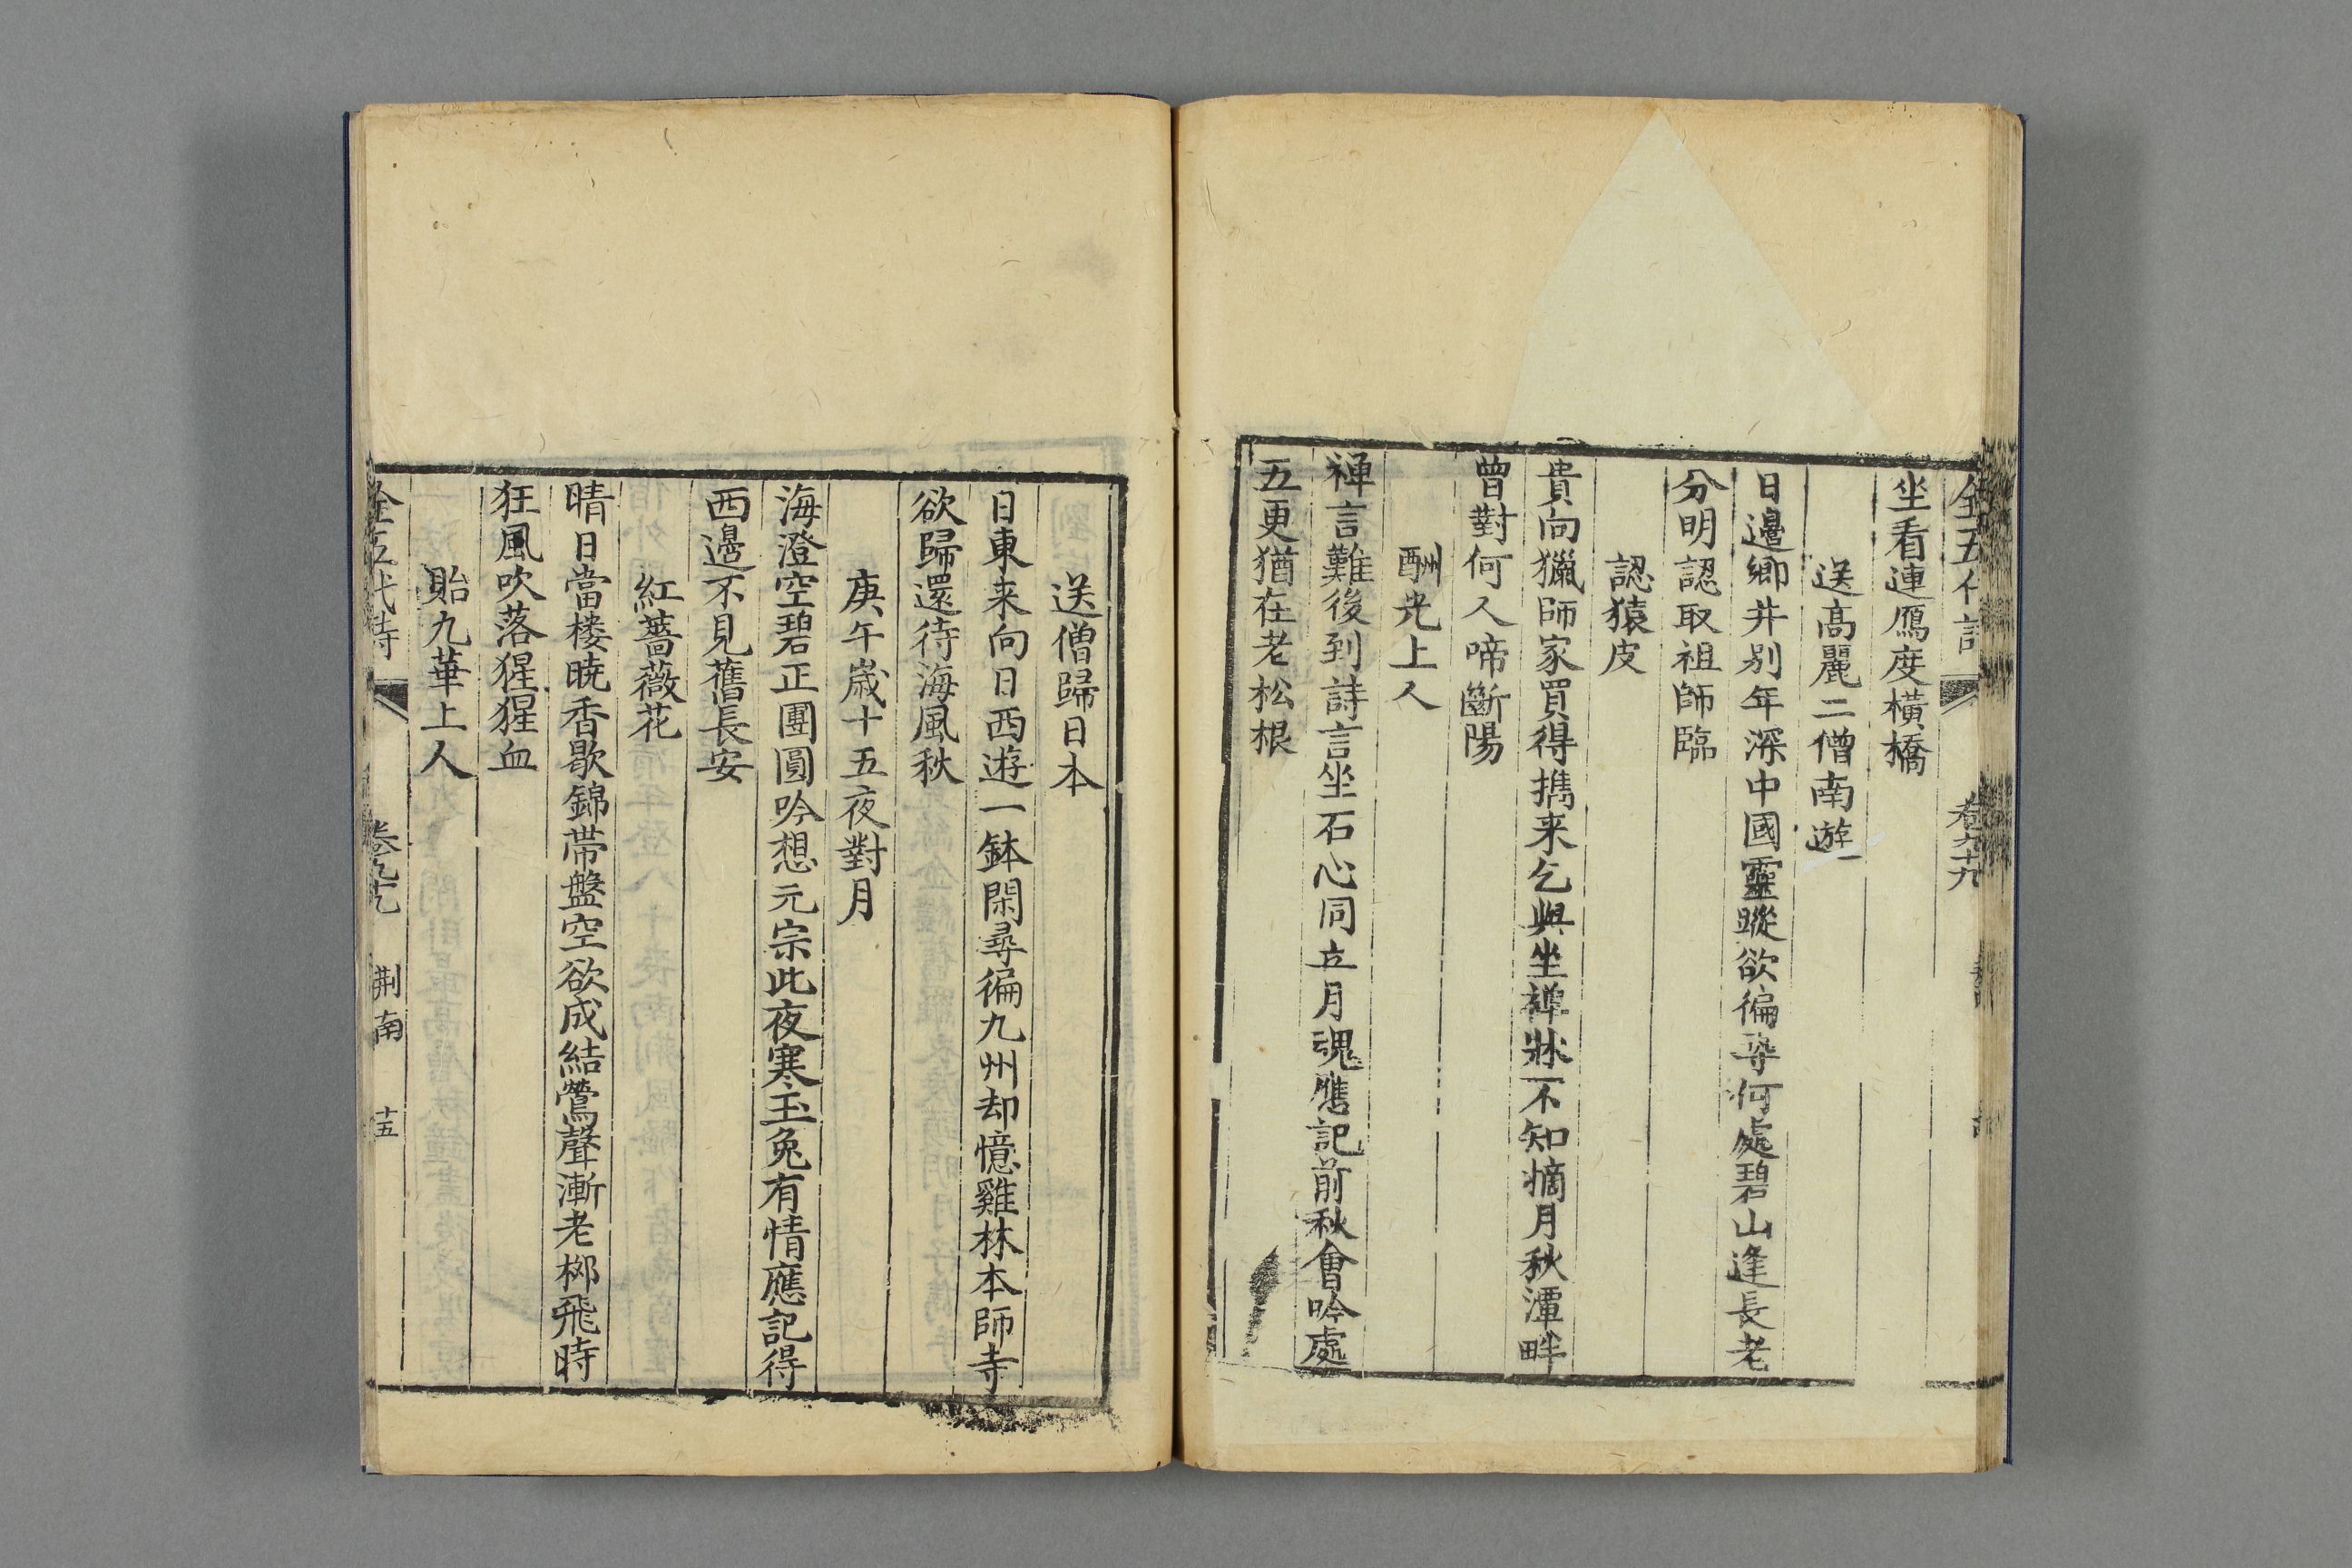 全五代詩
坐看連鴈度橫橋
送高麗二僧南遊
日邊鄉井别年深中國靈蹤欲徧尋何處碧山逢長老
分明認取祖師臨
認猿皮
貴向獵師家買得攜来乞與坐禪牀不知摘月秋潭畔
曾對何人啼斷陽
酬光上人
禪言難後到詩言坐石心同立月魂應記前秋會吟處
五更猶在老松根
送僧歸日本
日東来向日西遊一鉢閑尋徧九州却憶雞林本師寺
欲歸還待海風秋
庚午嵗十五夜對月
海澄空碧正團圓吟想元宗此夜寒玉兔有情應記得
西邊不見舊長安
紅薔薇花
晴日當楼曉香歇錦帶盤空欲成結鶯聲漸老栁飛時
狂風吹落猩猩血
貽九華上人
全五代詩
荆南
十五